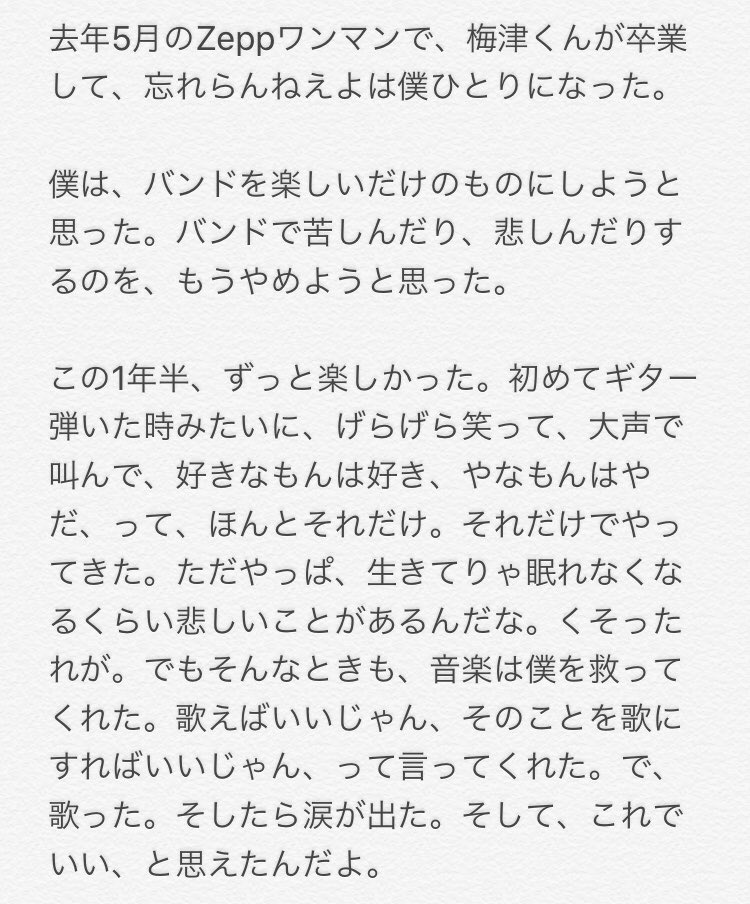 去年5月のZeppワンマンで、梅津くんが卒業
して、忘れらんねえよは僕ひとりになった。
僕は、バンドを楽しいだけのものにしようと
思った。バンドで苦しんだり、悲しんだりす
るのを、もうやめようと思った。
この1年半、ずっと楽しかった。初めてギター
弾いた時みたいに、げらげら笑って、大声で
叫んで、好きなもんは好き、やなもんはや
だ、って、ほんとそれだけ。それだけでやっ
てきた。ただやっぱ、生きてりゃ眠れなくな
るくらい悲しいことがあるんだな。くそった
れが。でもそんなときも、音楽は僕を救って
くれた。歌えばいいじゃん、そのことを歌に
すればいいじゃん、って言ってくれた。で、
歌った。そしたら涙が出た。そして、これで
いい、と思えたんだよ。